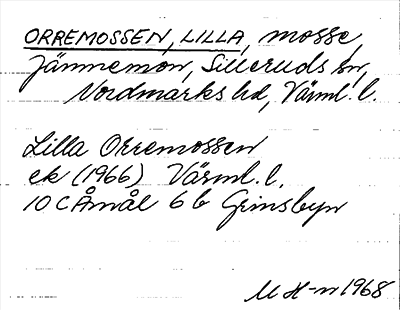 ORREMOSSEN, LILLA, mosse,
Jännemon, Silleruds sn,
Nordmarks hd, Värml. l.
Lilla Orremossen
ek (1966) Värml. l.
10 C Åmål 6 b Grinsbyn
M H-n 1968